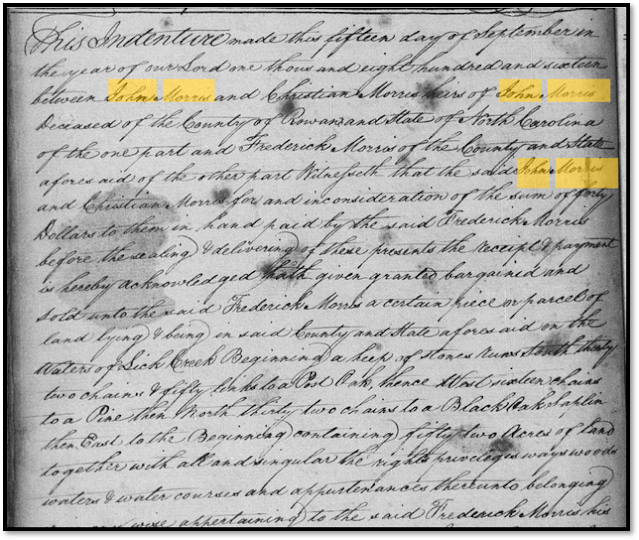 This Indenture made this fifteen day of September in
the year of our Lord one thousand eight hundred and sixteen
between John Morris and Christian Morris heirs of John Morris
Deceased of the County of Rowan and State of North Carolina
of the one part and Frederick Morris of the County and State
afores aid of the other part Witnesseth that the said John Morris
and Christian Morris for and in consideration of the sum of forty
Dollars to them in hand paid by the said Frederick Morris
before the sealing & delivering of these presents the receipt & payment
is hereby acknowledged hath given granted bargained and
sold unto the said Frederick Morris a certain piece or parcel of
land lying & being in said County and State afores aid on the
Waters of Lick Creek Beginning a heep of stones runs South thirty
two chains & fifty links to a Post Oak, thence West sixteen chains
to a Pine then North thirty two chains to a Black Oak Saplin
then East to the Beginning containing fifty two Acres of Land
together with all and singular the rights privileges ways woods
waters & water courses and appurtenances thereunto belonging
wise appertaining to the said Frederick Morris his